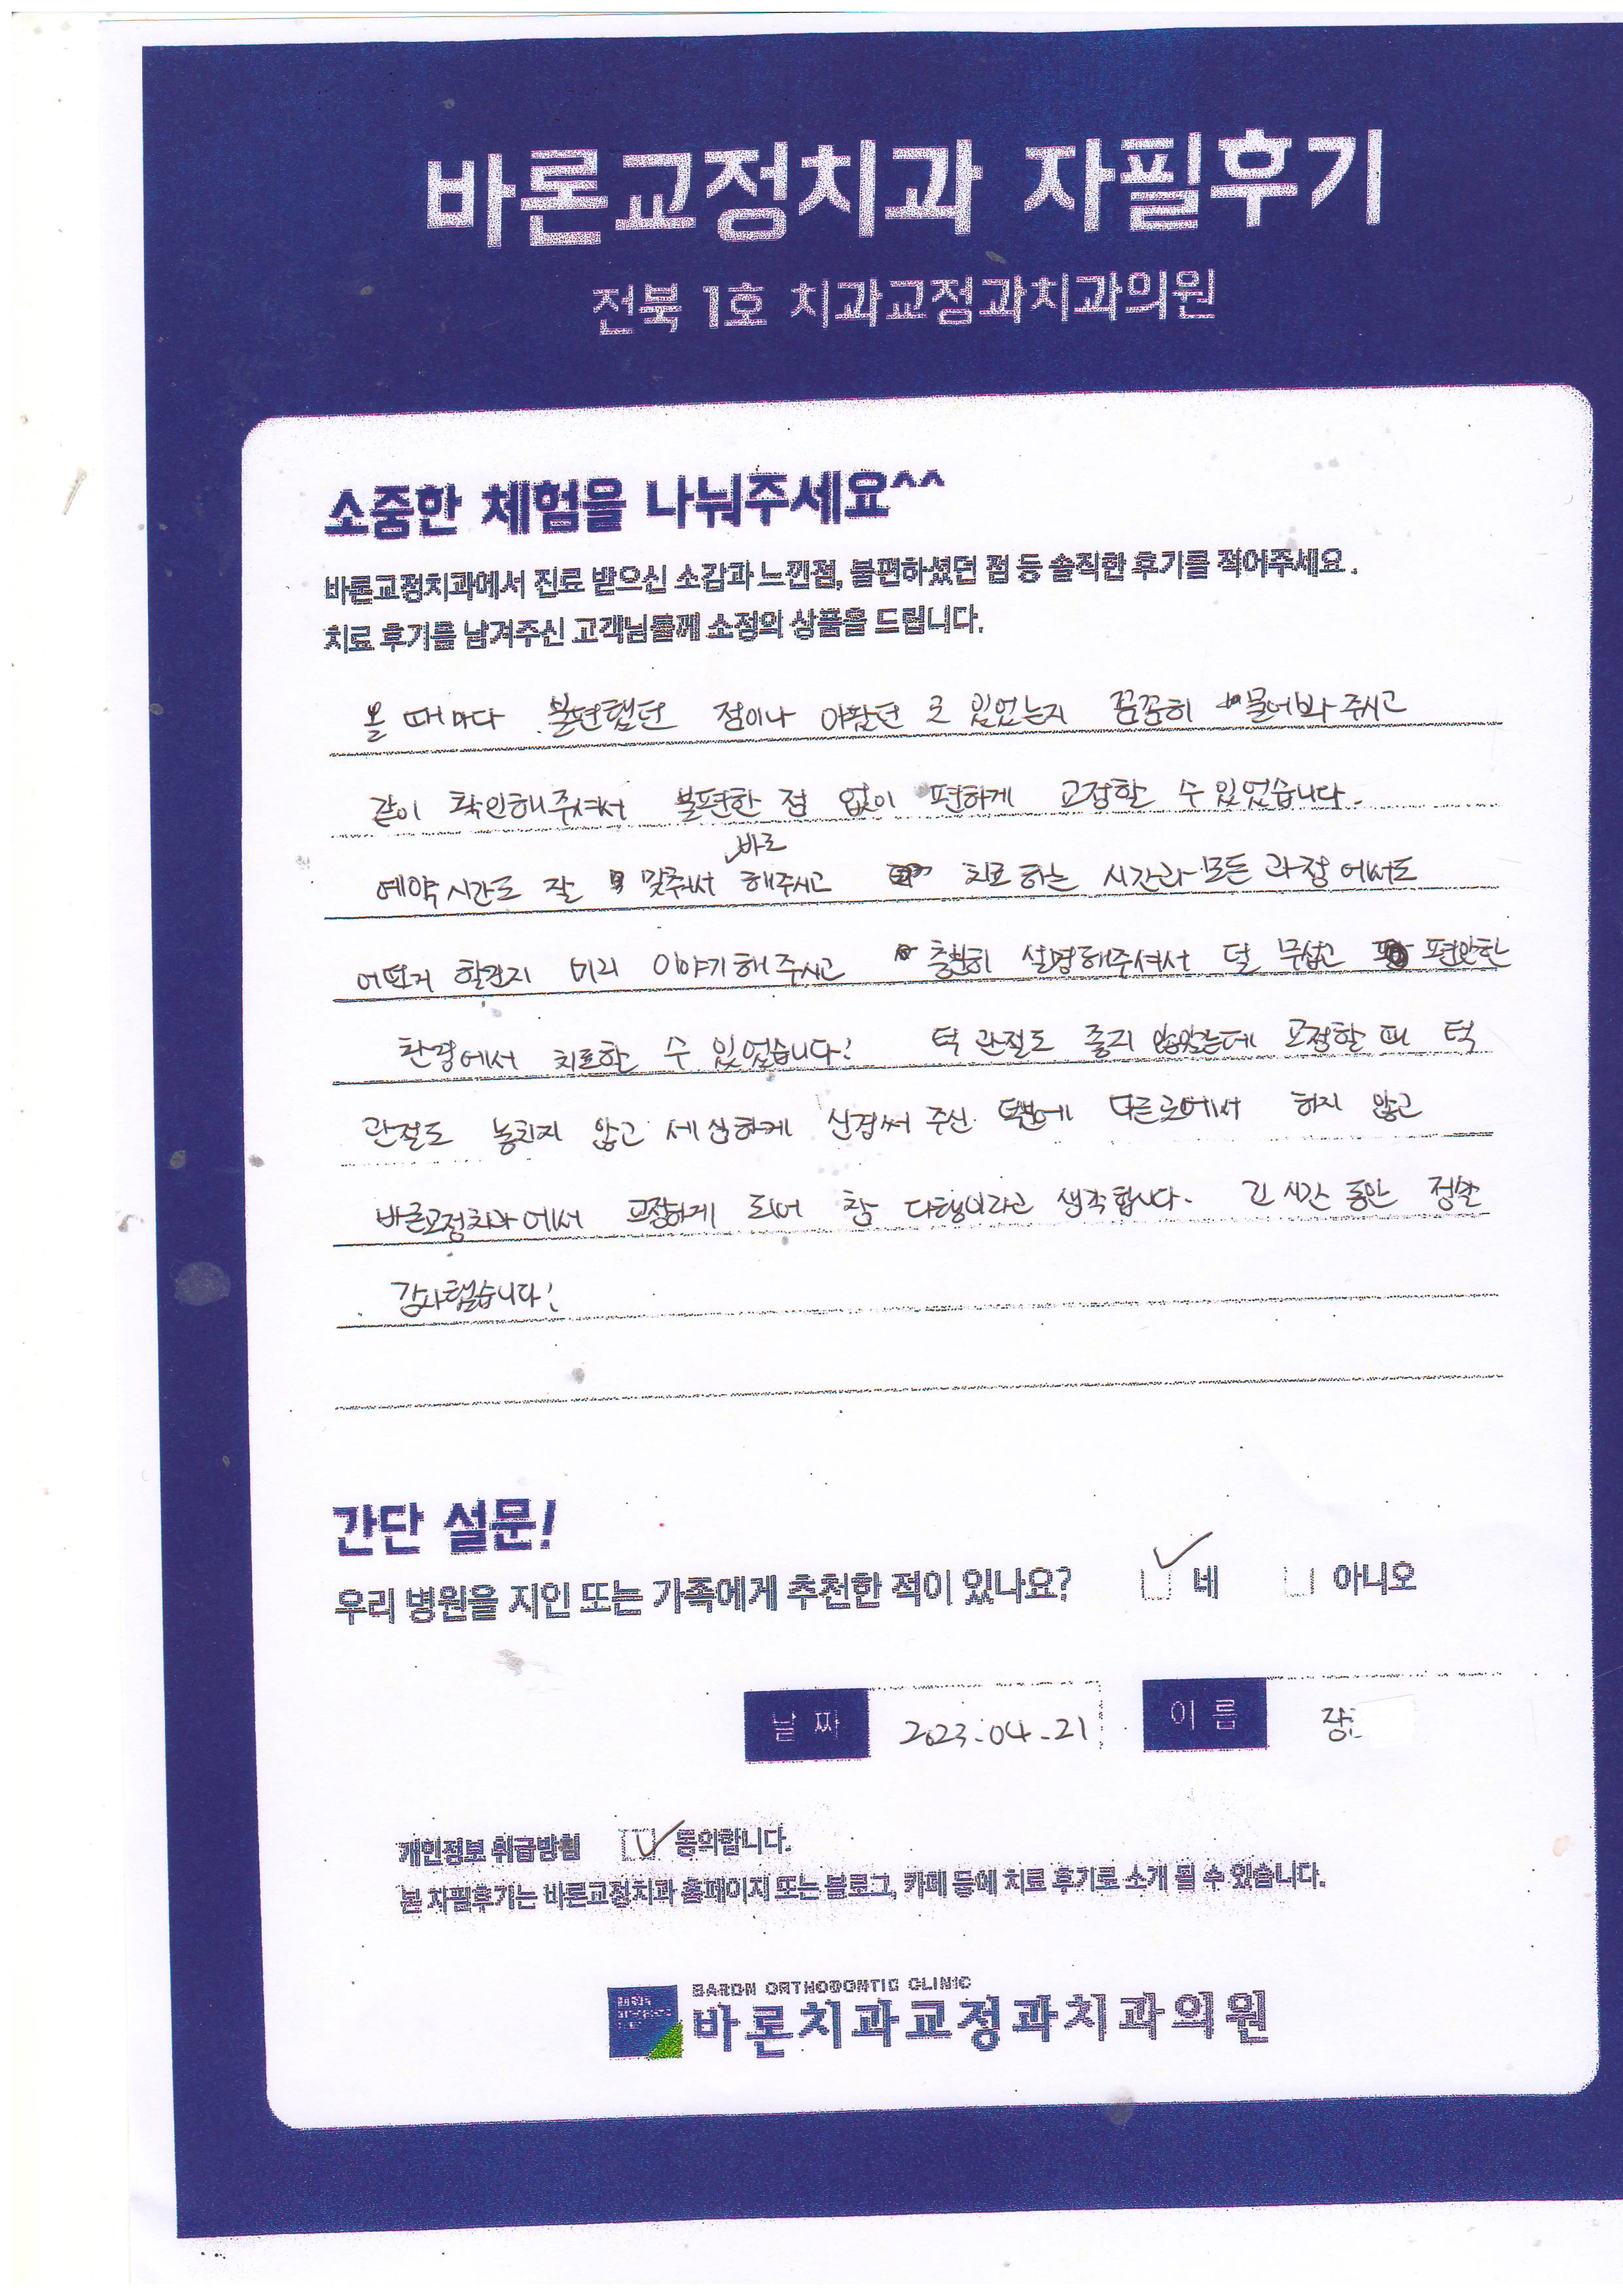 바론교정치과 자필후기
전북 1호 치과교정과치과의원
소중한 체험을 나눠주세요^^
바론교정치과에서 진료 받으신 소감과 느낀점, 불편하셨던 점 등 솔직한 후기를 적어주세요.
치료 후기를 남겨주신 고객님들께 소정의 상품을 드립니다.
올 때마다 불편했던 점이나 아팠던 곳 있었는지 꼼꼼히 물어봐 주시고
같이 확인해주셔서 불편한 점 없이 편하게 교정할 수 있었습니다.
바로
예약시간도 잘 맞춰서 해주시고 치료하는 시간과 모든 과정에서도
어떤거 할건지 미리 이야기해주시고 친절히 설명해주셔서 덜 무섭고 편안한
환경에서 치료할 수 있었습니다! 턱 관절도 좋지 않았는데 교정할 때 턱
관절도 놓치지 않고 세심하게 신경써 주신 덕분에 다른곳에서 하지 않고
바른교정치과에서 교정하게 되어 참 다행이라고 생각합니다. 긴 시간 동안 정말
감사했습니다!
간단 설문!
우리 병원을 지인 또는 가족에게 추천한 적이 있나요? 네 아니오
날짜 2023.04.21 이름 장
개인정보 취급방침 동의합니다.
본 자필후기는 바론교정치과 홈페이지 또는 블로그, 카페 등에 치료 후기로 소개 될 수 있습니다.
BARON ORTHODONTIC CLINIC
바론치과교정과치과의원